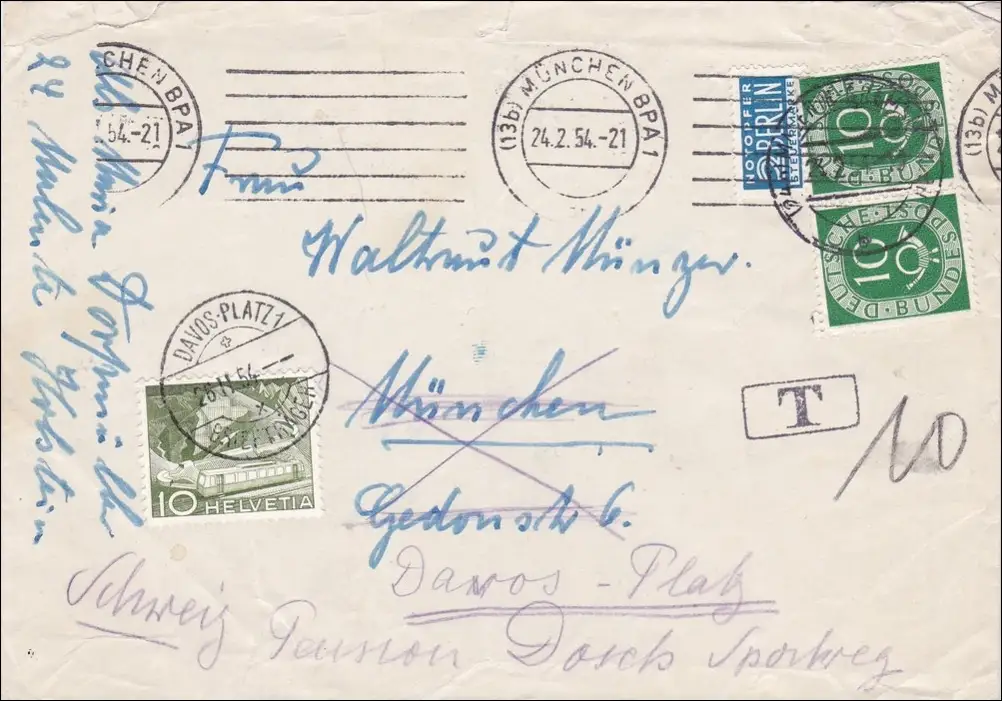 MÜNCHEN BPA 1
(13b) MÜNCHEN BPA 1
24.2.54.-21
54.-21
(13b) M
NOTOPFER
2 BERLIN
STEUERMARKE
DEUTSCHE BUNDESPOST
10
DEUTSCHE BUNDESPOST
10
Frau
Waltraut Münzer.
München
Gedonstr 6.
Davos-Platz
Schweiz Pension Dosch Sportweg
DAVOS-PLATZ 1
26.II.54
10 HELVETIA
T
10
Maria
24
Holstein